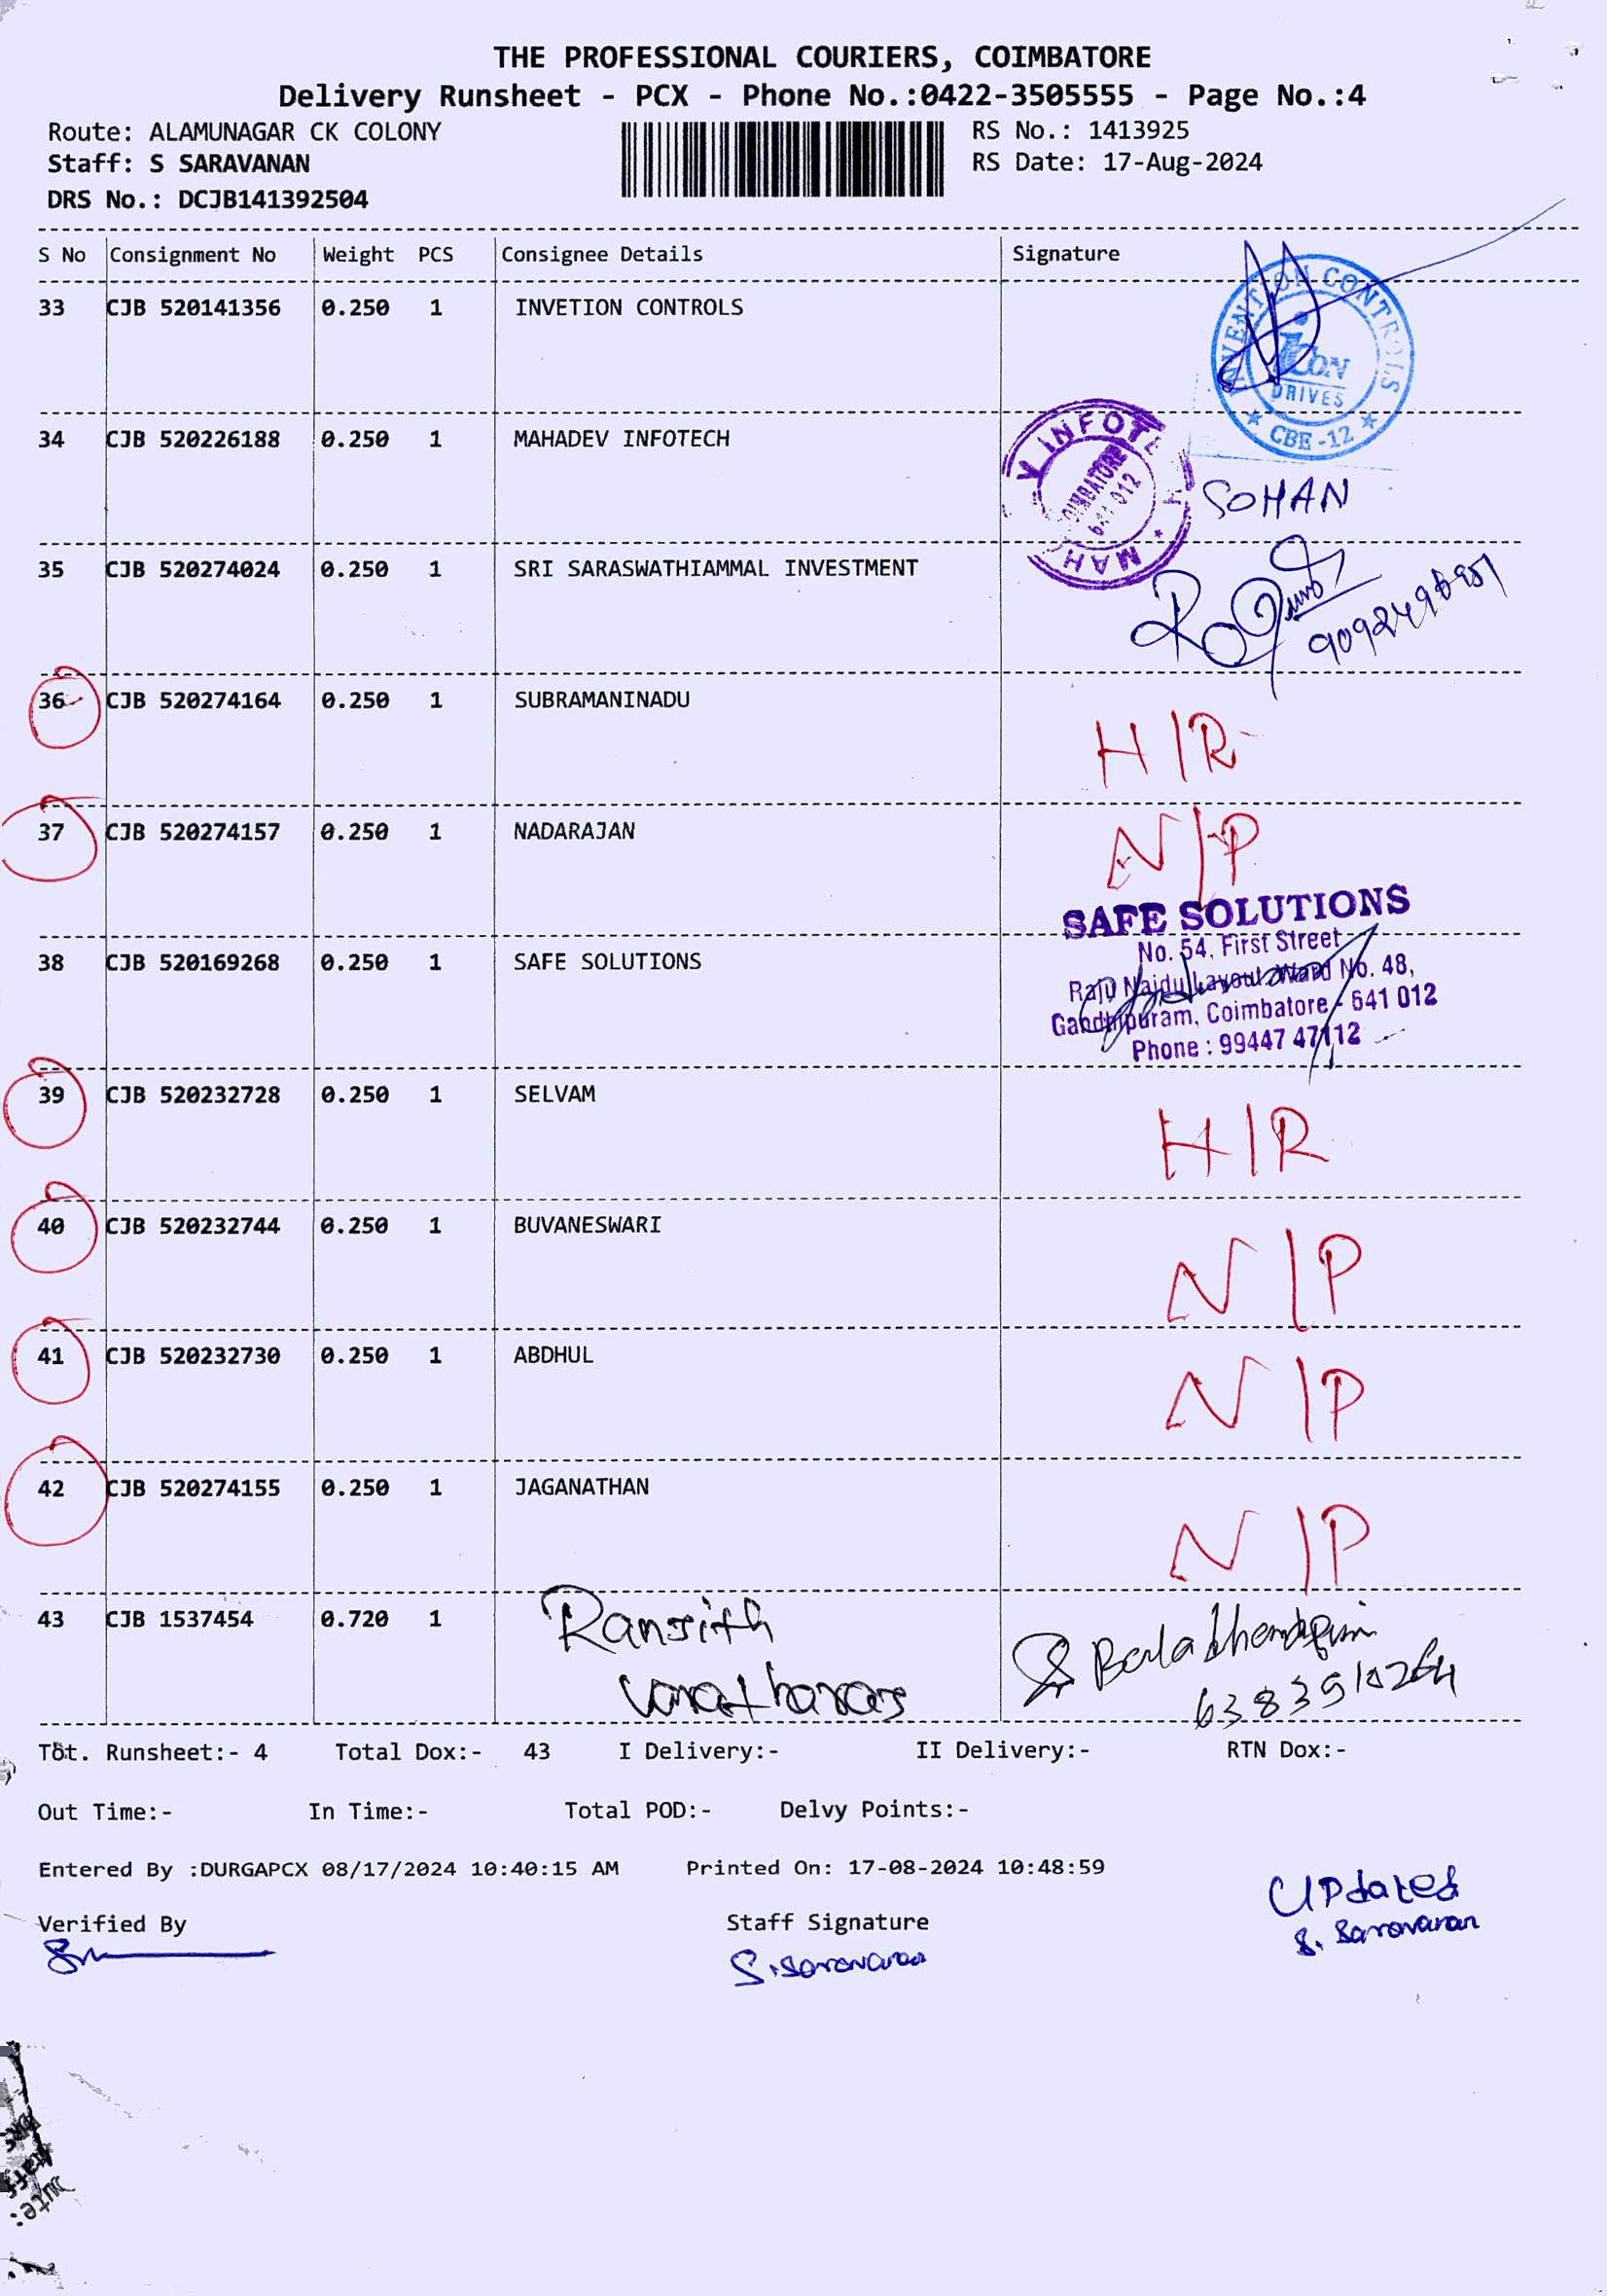 THE PROFESSIONAL COURIERS, COIMBATORE
Delivery Runsheet - PCX - Phone No.:0422-3505555 - Page No.:4
Route: ALAMUNAGAR CK COLONY
RS No.: 1413925
Staff: S SARAVANAN
RS Date: 17-Aug-2024
DRS No.: DCJB141392504
S No Consignment No Weight PCS Consignee Details Signature
33 CJB 520141356 0.250 1 INVETION CONTROLS
INVENTION CONTROLS
iCON
DRIVES
★ CBE-12 ★
34 CJB 520226188 0.250 1 MAHADEV INFOTECH
MAH V INFOTE
COIMBATORE
641 012
SOHAN
35 CJB 520274024 0.250 1 SRI SARASWATHIAMMAL INVESTMENT
36 CJB 520274164 0.250 1 SUBRAMANINADU
H/R
37 CJB 520274157 0.250 1 NADARAJAN
N/P
38 CJB 520169268 0.250 1 SAFE SOLUTIONS
SAFE SOLUTIONS
No. 54, First Street
Raju Naidu Layout, Ward No. 48,
Gandhipuram, Coimbatore - 641 012
Phone : 99447 47112
39 CJB 520232728 0.250 1 SELVAM
H/R
40 CJB 520232744 0.250 1 BUVANESWARI
N/P
41 CJB 520232730 0.250 1 ABDHUL
N/P
42 CJB 520274155 0.250 1 JAGANATHAN
N/P
43 CJB 1537454 0.720 1 Ranjith
Tot. Runsheet:- 4 Total Dox:- 43 I Delivery:- II Delivery:- RTN Dox:-
Out Time:- In Time:- Total POD:- Delvy Points:-
Entered By :DURGAPCX 08/17/2024 10:40:15 AM Printed On: 17-08-2024 10:48:59
Updated
S. Saravanan
Verified By
Staff Signature
S.Saravanan